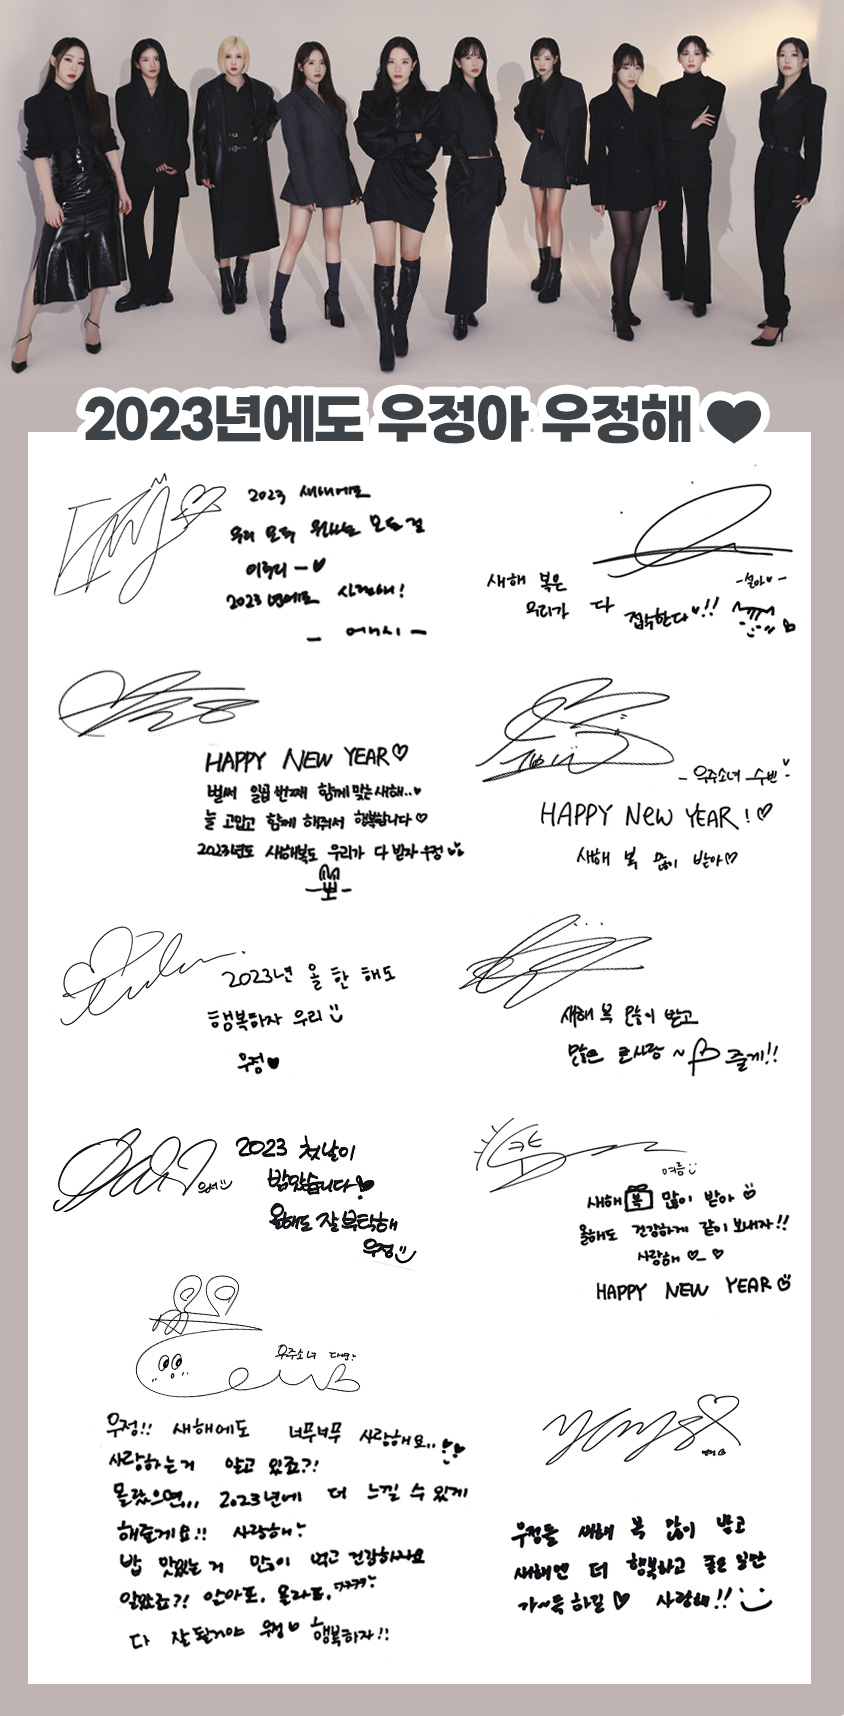 2023년에도 우정아 우정해
2023 새해에도
우리 모두 원하는 모든 걸
이루디
2023년에도 사랑해!
새해 복은
우리가 다
접수한다!!
-설아-
HAPPY NEW YEAR
벌써 일곱 번째 함께 맞는 새해..
늘 고맙고 함께 해줘서 행복합니다
2023년도 새해복도 우리가 다 받자 우정
-뽀-
- 우주소녀 수빈
HAPPY NEW YEAR!
새해 복 많이 받아
2023년 올 한 해도
행복하자 우리
우정
새해 복 많이 받고
많은 큰사랑 ~ 줄게!!
2023 첫날이
밝았습니다
올해도 잘 부탁해
우정
여름
새해 복 많이 받아
올해도 건강하게 같이 보내자!!
사랑해
HAPPY NEW YEAR
우주소녀 다영
우정!! 새해에도 너무너무 사랑해요..
사랑하는거 알고 있죠?!
몰랐으면,,, 2023년에 더 느낄 수 있게
해줄게요!! 사랑해
밥 맛있는 거 많이 먹고 건강하자요
알았죠?! 안아프, 올라프,
다 잘 될거야 우정 행복하자!!
우정들 새해 복 많이 받고
새해엔 더 행복하고 좋은 일만
가~득 하길 사랑해!!